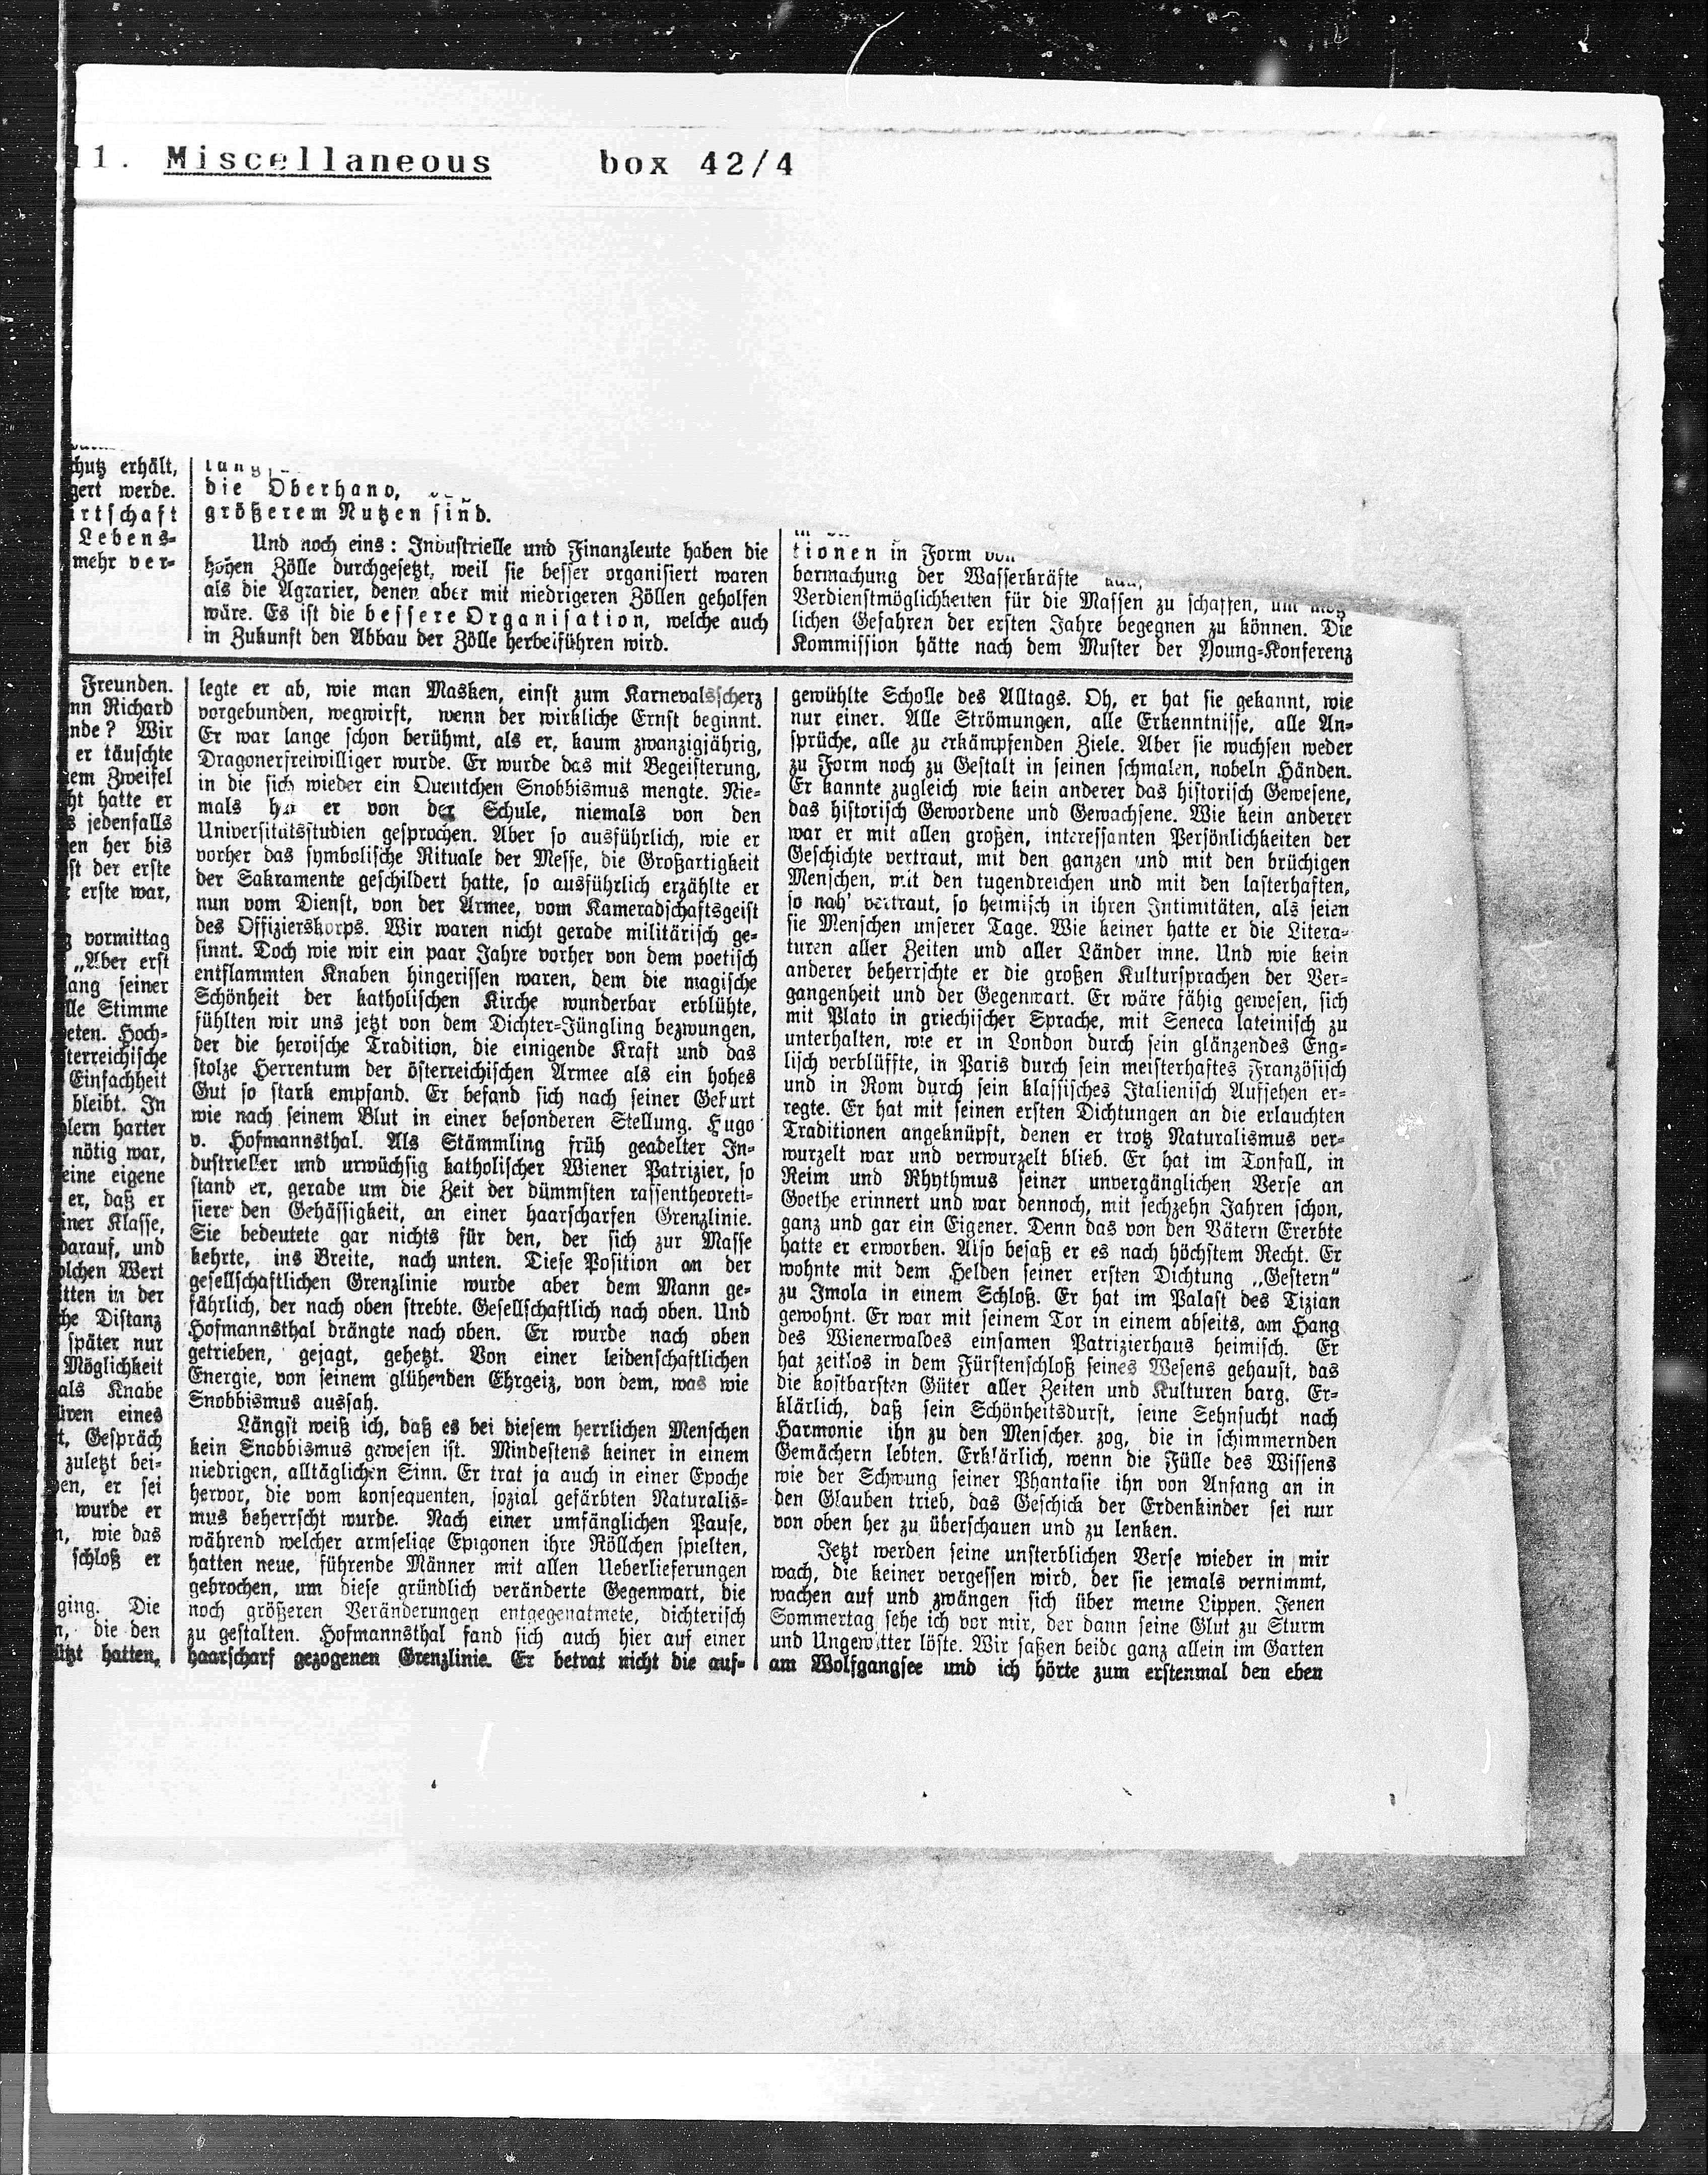 11. Miscellaneous box 42/4
chutz erhält,
gert werde.
irtschaft
Lebens-
mehr ver-
die Oberhand,
größerem Nutzen sind.
Und noch eins: Industrielle und Finanzleute haben die
hohen Zölle durchgesetzt, weil sie besser organisiert waren
als die Agrarier, denen aber mit niedrigeren Zöllen geholfen
wäre. Es ist die bessere Organisation, welche auch
in Zukunft den Abbau der Zölle herbeiführen wird.
tionen in Form von
barmachung der Wasserkräfte
Verdienstmöglichkeiten für die Massen zu schaffen, um mög
lichen Gefahren der ersten Jahre begegnen zu können. Die
Kommission hätte nach dem Muster der Young-Konferenz
Freunden.
nn Richard
nde? Wir
er täuschte
em Zweifel
ht hatte er
s jedenfalls
en her bis
st der erste
r erste war,
g vormittag
„Aber erst
lang seiner
lle Stimme
beten. Hoch-
terreichische
Einfachheit
bleibt. In
lern harter
nötig war,
eine eigene
er, daß er
iner Klasse,
darauf, und
olchen Wert
itten in der
che Distanz
später nur
Möglichkeit
als Knabe
üren eines
t, Gespräch
zuletzt bei-
en, er sei
wurde er
n, wie das
schloß er
ging. Die
n, die den
ützt hatten,
legte er ab, wie man Masken, einst zum Karnevalsscherz
vorgebunden, wegwirft, wenn der wirkliche Ernst beginnt.
Er war lange schon berühmt, als er, kaum zwanzigjährig,
Dragonerfreiwilliger wurde. Er wurde das mit Begeisterung,
in die sich wieder ein Quentchen Snobbismus mengte. Nie-
mals hat er von der Schule, niemals von den
Universitätsstudien gesprochen. Aber so ausführlich, wie er
vorher das symbolische Rituale der Messe, die Großartigkeit
der Sakramente geschildert hatte, so ausführlich erzählte er
nun vom Dienst, von der Armee, vom Kameradschaftsgeist
des Offizierskorps. Wir waren nicht gerade militärisch ge-
sinnt. Doch wie wir ein paar Jahre vorher von dem poetisch
entflammten Knaben hingerissen waren, dem die magische
Schönheit der katholischen Kirche wunderbar erblühte,
fühlten wir uns jetzt von dem Dichter-Jüngling bezwungen,
der die heroische Tradition, die einigende Kraft und das
stolze Herrentum der österreichischen Armee als ein hohes
Gut so stark empfand. Er befand sich nach seiner Geburt
wie nach seinem Blut in einer besonderen Stellung. Hugo
v. Hofmannsthal. Als Stämmling früh geadelter In-
dustrieller und urwüchsig katholischer Wiener Patrizier, so
stand er, gerade um die Zeit der dümmsten rassentheoreti-
sierenden Gehässigkeit, an einer haarscharfen Grenzlinie.
Sie bedeutete gar nichts für den, der sich zur Masse
kehrte, ins Breite, nach unten. Diese Position an der
gesellschaftlichen Grenzlinie wurde aber dem Mann ge-
fährlich, der nach oben strebte. Gesellschaftlich nach oben. Und
Hofmannsthal drängte nach oben. Er wurde nach oben
getrieben, gejagt, gehetzt. Von einer leidenschaftlichen
Energie, von seinem glühenden Ehrgeiz, von dem, was wie
Snobbismus aussah.
Längst weiß ich, daß es bei diesem herrlichen Menschen
kein Snobbismus gewesen ist. Mindestens keiner in einem
niedrigen, alltäglichen Sinn. Er trat ja auch in einer Epoche
hervor, die vom konsequenten, sozial gefärbten Naturalis-
mus beherrscht wurde. Nach einer umfänglichen Pause,
während welcher armselige Epigonen ihre Röllchen spielten,
hatten neue, führende Männer mit allen Ueberlieferungen
gebrochen, um diese gründlich veränderte Gegenwart, die
noch größeren Veränderungen entgegenatmete, dichterisch
zu gestalten. Hofmannsthal fand sich auch hier auf einer
haarscharf gezogenen Grenzlinie. Er betrat nicht die auf-
gewühlte Scholle des Alltags. Oh, er hat sie gekannt, wie
nur einer. Alle Strömungen, alle Erkenntnisse, alle An-
sprüche, alle zu erkämpfenden Ziele. Aber sie wuchsen weder
zu Form noch zu Gestalt in seinen schmalen, nobeln Händen.
Er kannte zugleich wie kein anderer das historisch Gewesene,
das historisch Gewordene und Gewachsene. Wie kein anderer
war er mit allen großen, interessanten Persönlichkeiten der
Geschichte vertraut, mit den ganzen und mit den brüchigen
Menschen, mit den tugendreichen und mit den lasterhaften,
so nah' vertraut, so heimisch in ihren Intimitäten, als seien
sie Menschen unserer Tage. Wie keiner hatte er die Litera-
turen aller Zeiten und aller Länder inne. Und wie kein
anderer beherrschte er die großen Kultursprachen der Ver-
gangenheit und der Gegenwart. Er wäre fähig gewesen, sich
mit Plato in griechischer Sprache, mit Seneca lateinisch zu
unterhalten, wie er in London durch sein glänzendes Eng-
lisch verblüffte, in Paris durch sein meisterhaftes Französisch
und in Rom durch sein klassisches Italienisch Aufsehen er-
regte. Er hat mit seinen ersten Dichtungen an die erlauchten
Traditionen angeknüpft, denen er trotz Naturalismus ver-
wurzelt war und verwurzelt blieb. Er hat im Tonfall, in
Reim und Rhythmus seiner unvergänglichen Verse an
Goethe erinnert und war dennoch, mit sechzehn Jahren schon,
ganz und gar ein Eigener. Denn das von den Vätern Ererbte
hatte er erworben. Also besaß er es nach höchstem Recht. Er
wohnte mit dem Helden seiner ersten Dichtung „Gestern“
zu Imola in einem Schloß. Er hat im Palast des Tizian
gewohnt. Er war mit seinem Tor in einem abseits, am Hang
des Wienerwaldes einsamen Patrizierhaus heimisch. Er
hat zeitlos in dem Fürstenschloß seines Wesens gehaust, das
die kostbarsten Güter aller Zeiten und Kulturen barg. Er-
klärlich, daß sein Schönheitsdurst, seine Sehnsucht nach
Harmonie ihn zu den Menschen zog, die in schimmernden
Gemächern lebten. Erklärlich, wenn die Fülle des Wissens
wie der Schwung seiner Phantasie ihn von Anfang an in
den Glauben trieb, das Geschick der Erdenkinder sei nur
von oben her zu überschauen und zu lenken.
Jetzt werden seine unsterblichen Verse wieder in mir
wach, die keiner vergessen wird, der sie jemals vernimmt,
wachen auf und zwängen sich über meine Lippen. Jenen
Sommertag sehe ich vor mir, der dann seine Glut zu Sturm
und Ungewitter löste. Wir saßen beide ganz allein im Garten
am Wolfgangsee und ich hörte zum erstenmal den eben